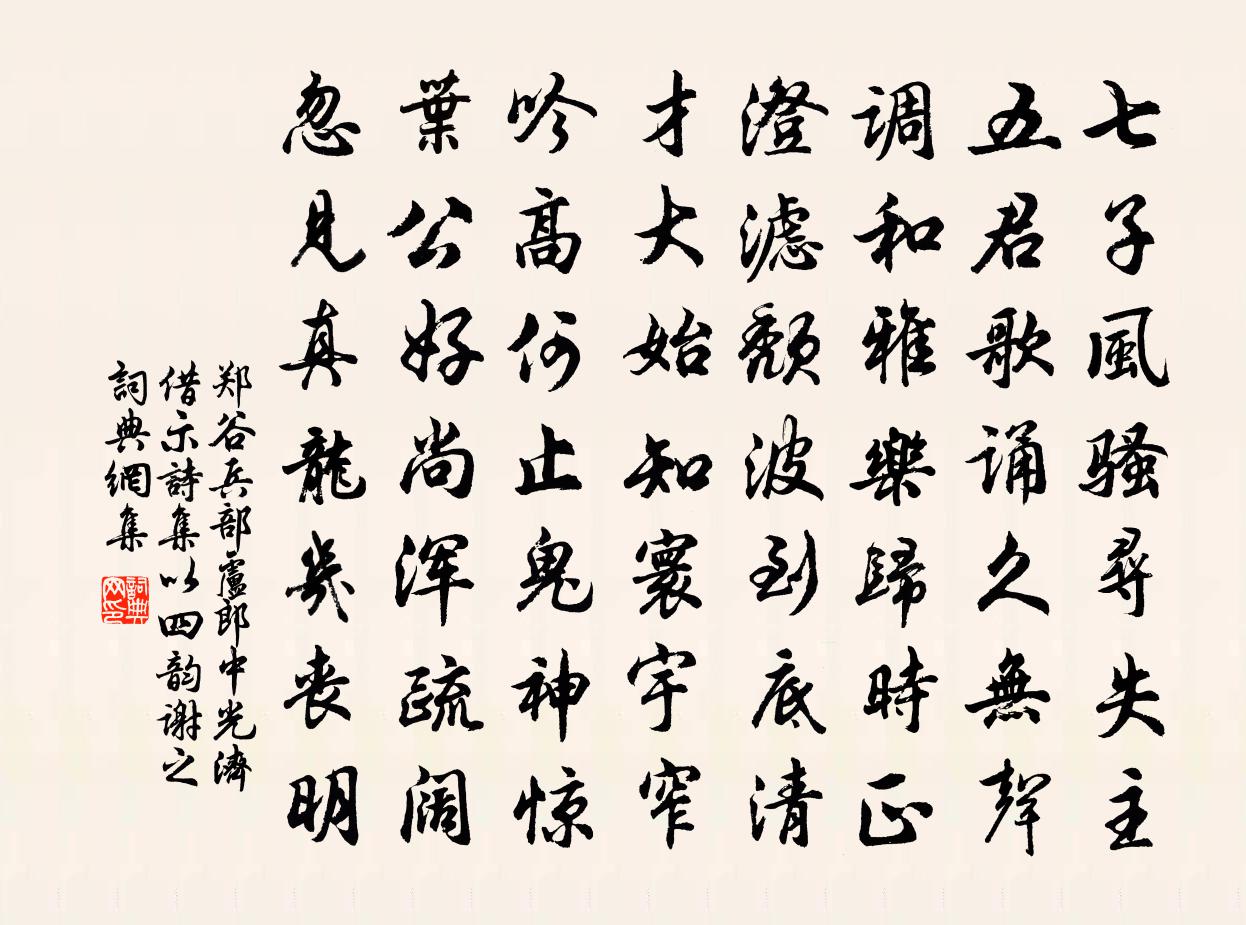 七子風骚尋失主
五君歌诵久無聲
调和雅樂歸時正
澄滤颓波到底清
才大始知寰宇窄
吟高何止鬼神惊
葉公好尚浑疏阔
忽見真龍幾丧明
郑谷兵部盧郎中光濟
借示詩集以四韵谢之
詞典網集
詞典
网印